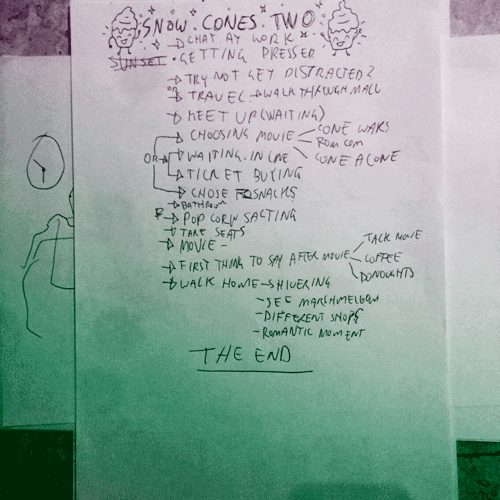 SNOW.CONES.TWO
→ CHAT AY WORK
SUNSET • GETTING PRESSER
→ TRY NOT GEY DISTRACTED?
OR
→ TRAVEL → WALK THROUGH MALL
→ MEET UP (WAITING)
→ CHOOSING MOVIE
CONE WARS
ROM COM
CONE A CONE
OR → WAITING IN LINE
→ TICKET BUYING
→ CHOSE SNACKS
→ BATHROOM
→ POPCORN SALTING
→ TAKE SEATS
→ MOVIE -
→ FIRST THING TO SAY AFTER MOVIE
TALK MOVIE
COFFEE
DONOUGHTS
→ WALK HOME - SHIVERING
- SEE MARSHMELLOW
- DIFFERENT SHOPS
- ROMANTIC MOMENT
THE END